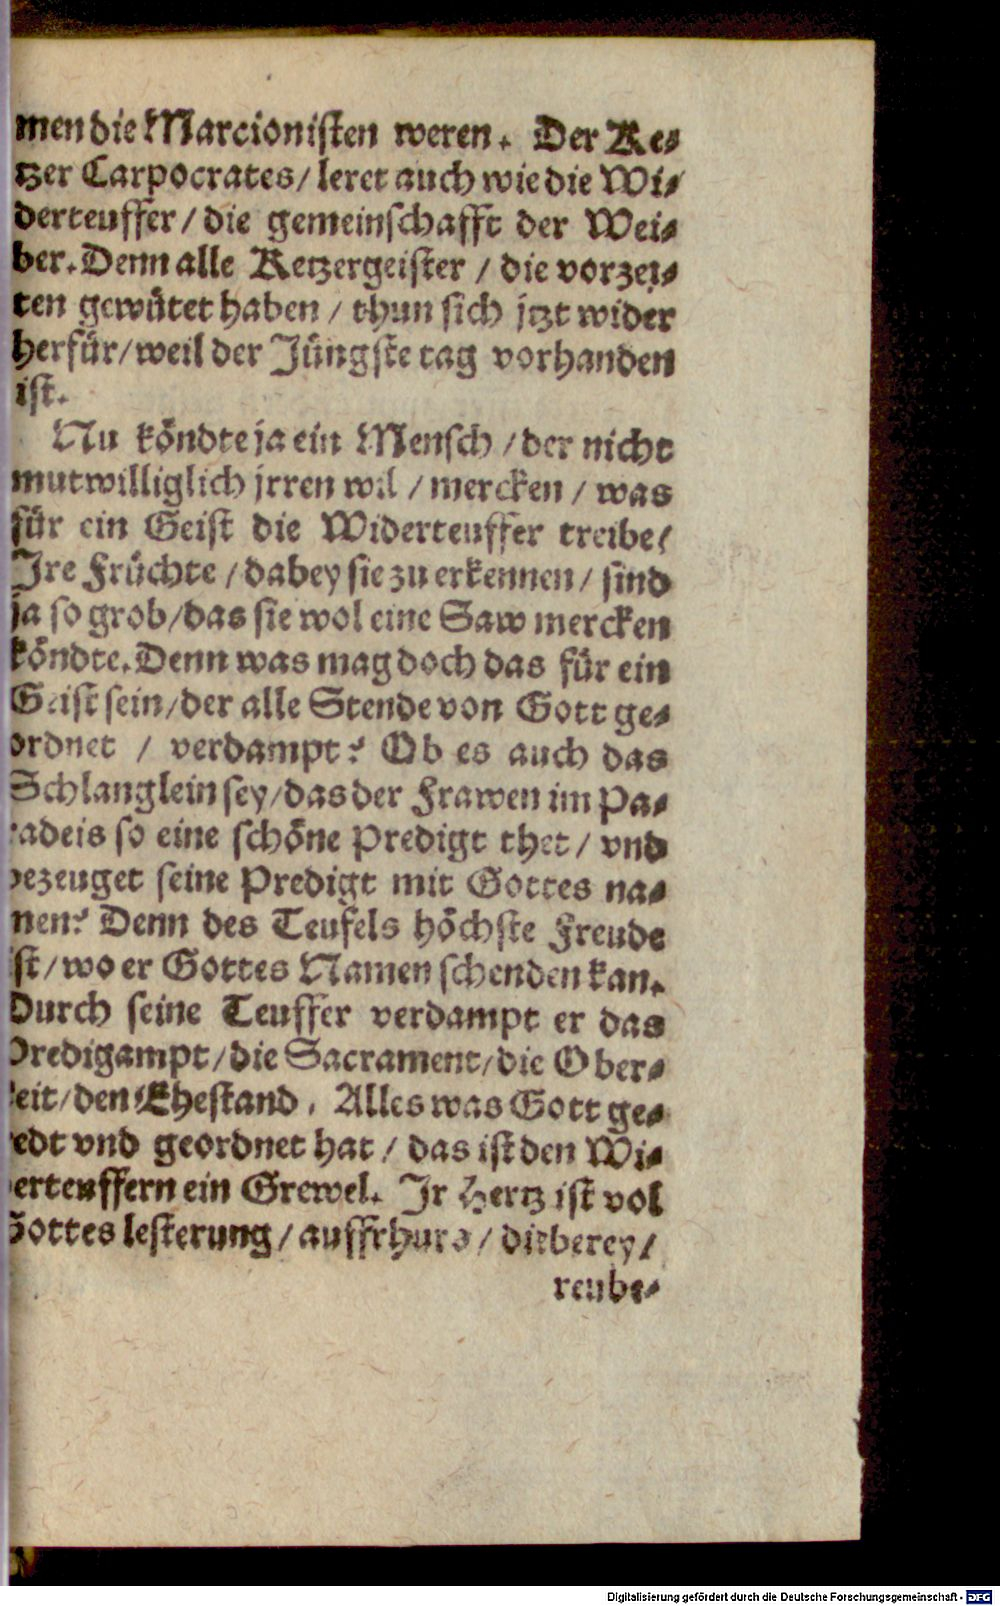 men die Marcionisten weren. Der Ke-
tzer Carpocrates/ leret auch wie die Wi-
derteuffer/ die gemeinschafft der Wei-
ber. Denn alle Ketzergeister / die vorzei-
ten gewütet haben / thun sich jtzt wider
herfür/ weil der Jüngste tag vorhanden
ist.
Nu köndte ja ein Mensch / der nicht
mutwilliglich jrren wil / mercken / was
für ein Geist die Widerteuffer treibe/
Ire Früchte / dabey sie zu erkennen / sind
ja so grob/ das sie wol eine Saw mercken
köndte. Denn was mag doch das für ein
Geist sein/ der alle Stende von Gott ge-
ordnet / verdampt? Ob es auch das
Schlanglein sey/ das der Frawen im Pa-
radeis so eine schöne Predigt thet / vnd
bezeuget seine Predigt mit Gottes na-
men? Denn des Teufels höchste Freude
ist / wo er Gottes Namen schenden kan.
Durch seine Teuffer verdampt er das
Predigampt/ die Sacrament/ die Ober-
keit/ den Ehestand, Alles was Gott ge-
redt vnd geordnet hat / das ist den Wi-
derteuffern ein Grewel. Ir Hertz ist vol
Gottes lesterung/ auffrhurs / dieberey/
reube-
Digitalisierung gefördert durch die Deutsche Forschungsgemeinschaft - DFG